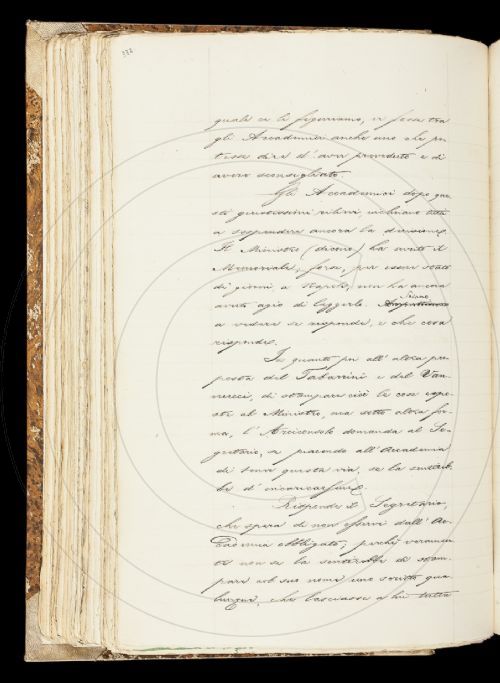 332
quale ce la figuriamo, vi fosse tra
gli Accademici anche uno che po-
tesse dire d' aver preveduto e di
avere sconsigliato.
Gli Accademici dopo que-
sti giustissimi rilievi, inclinano tutti
a sospendere ancora la decisione.
Il Ministro (dicono) ha avuto il
Memoriale; forse, per essere stato
di giorni, a Napoli, non ha ancora
avuto agio di leggerlo. Stiamo
a vedere se risponde, e che cosa
risponde.
In quanto poi all' altra pro-
posta del Tabarrini e del Van-
nucci, di stampare cioè le cose espo-
ste al Ministro, ma sotto altra for-
ma, l' Arciconsolo domanda al Se-
gretario, se piacendo all' Accademia
di tener questa via, se la sentireb-
be d' incaricarsene.
Risponde il Segretario,
che spera di non esservi dall' Ac-
cademia obbligato; perchè veramen-
te non se la sentirebbe di stam-
pare col suo nome uno scritto qua-
lunque, che lasciasse a lui tutta